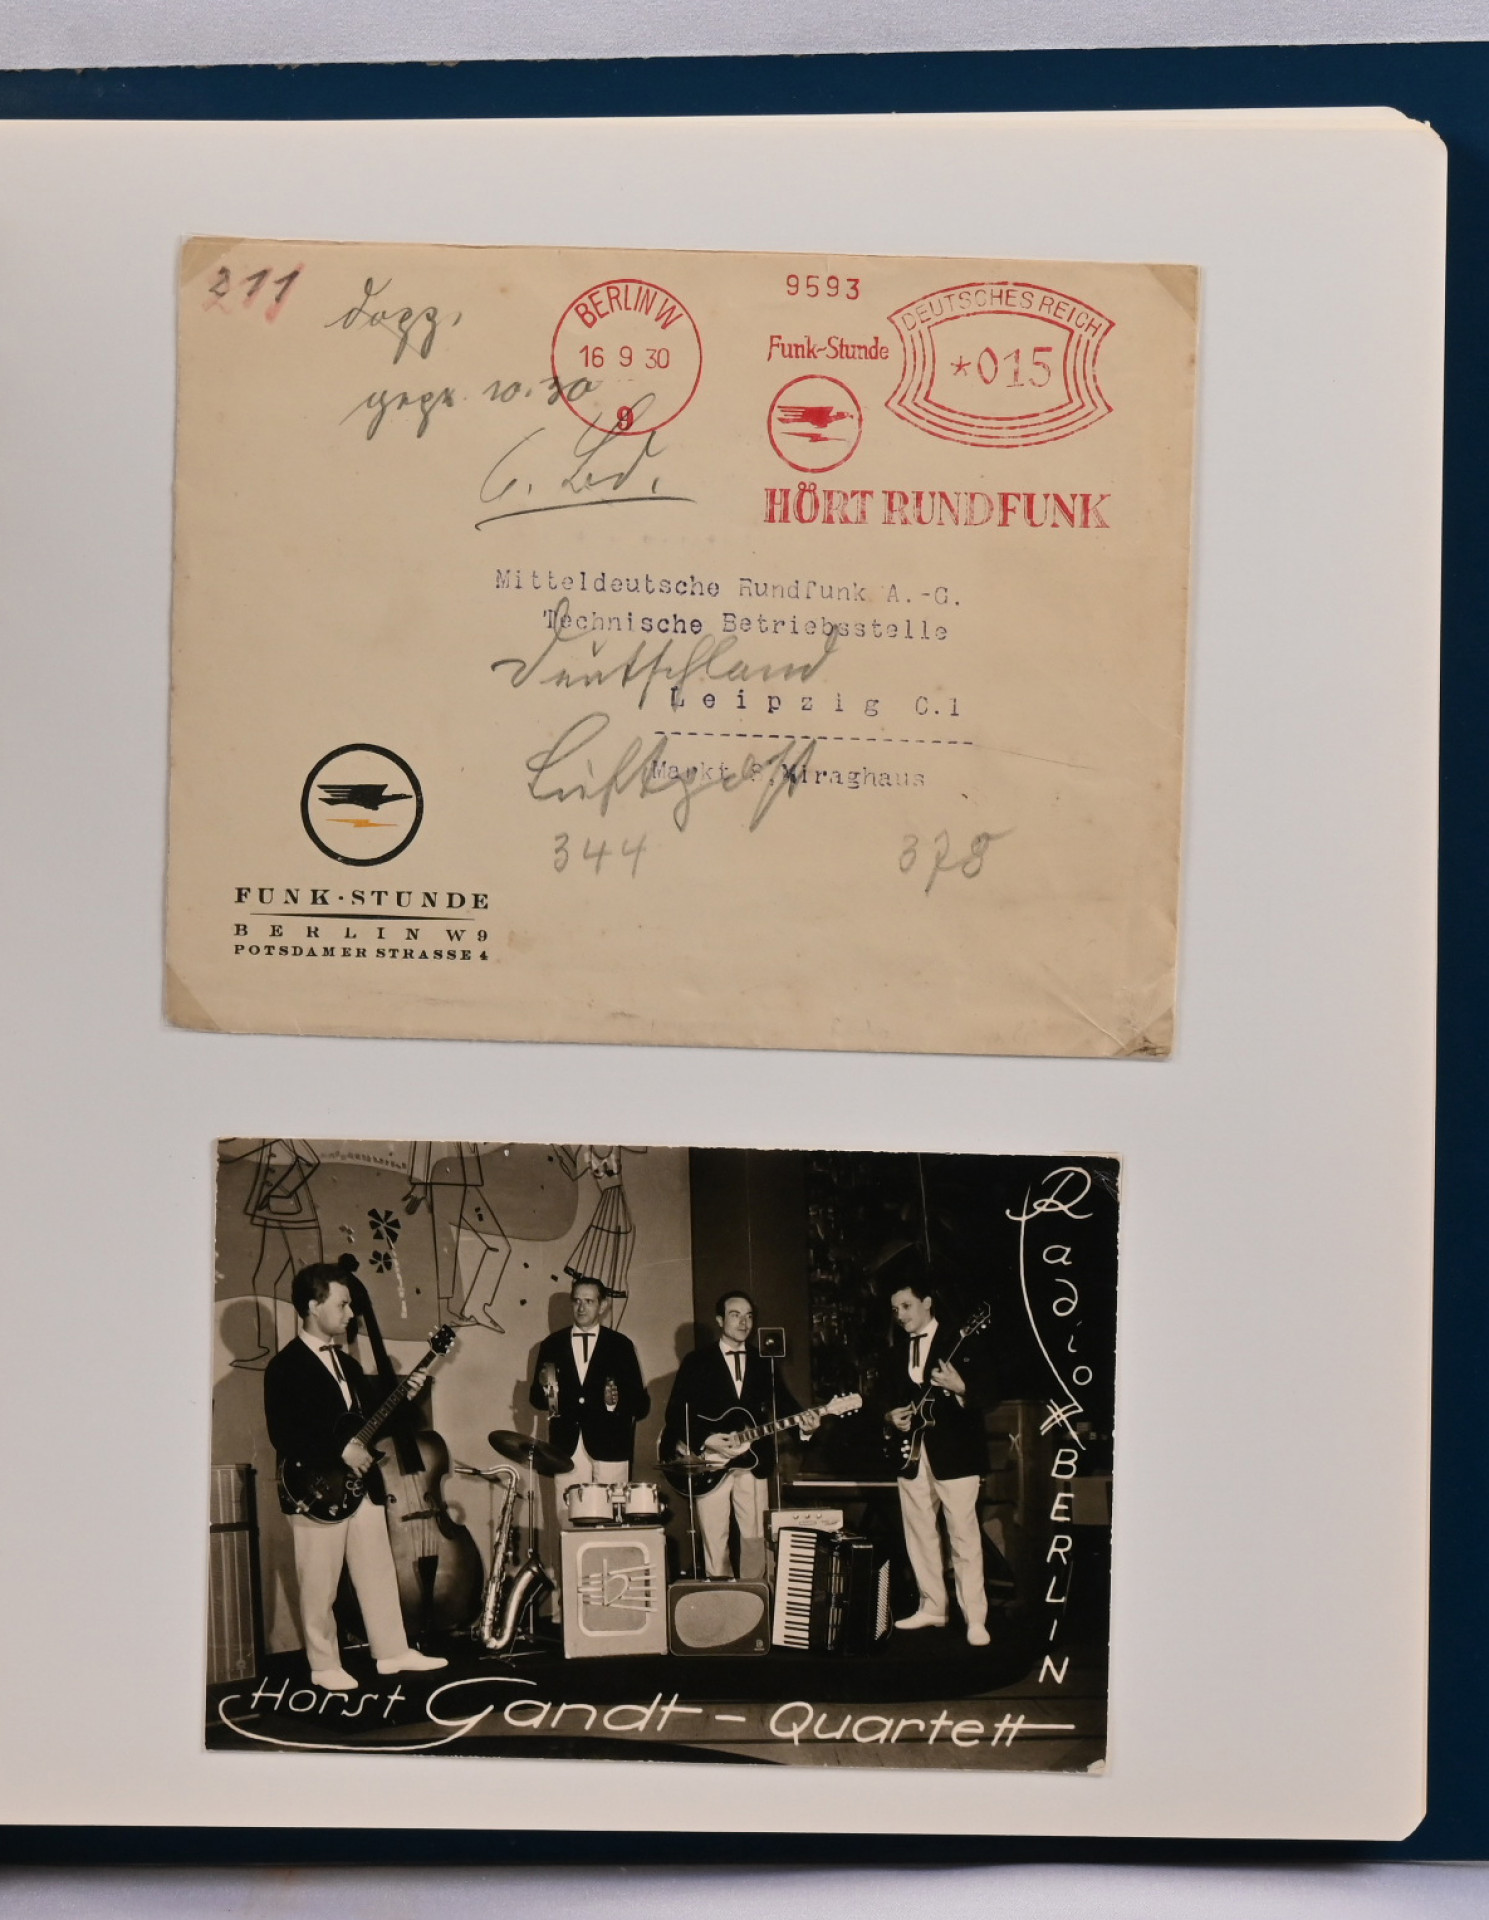 211
BERLIN W
16 9 30
9
9593
Funk-Stunde
DEUTSCHES REICH
*015
HÖRT RUNDFUNK
10.30
Mitteldeutsche Rundfunk A.-G.
Technische Betriebsstelle
Deutschland
Leipzig C.1
Markt 8. Miraghaus
Luftpost
344 378
FUNK·STUNDE
BERLIN W9
POTSDAMER STRASSE 4
Radio
BERLIN
Horst Gandt - Quartett